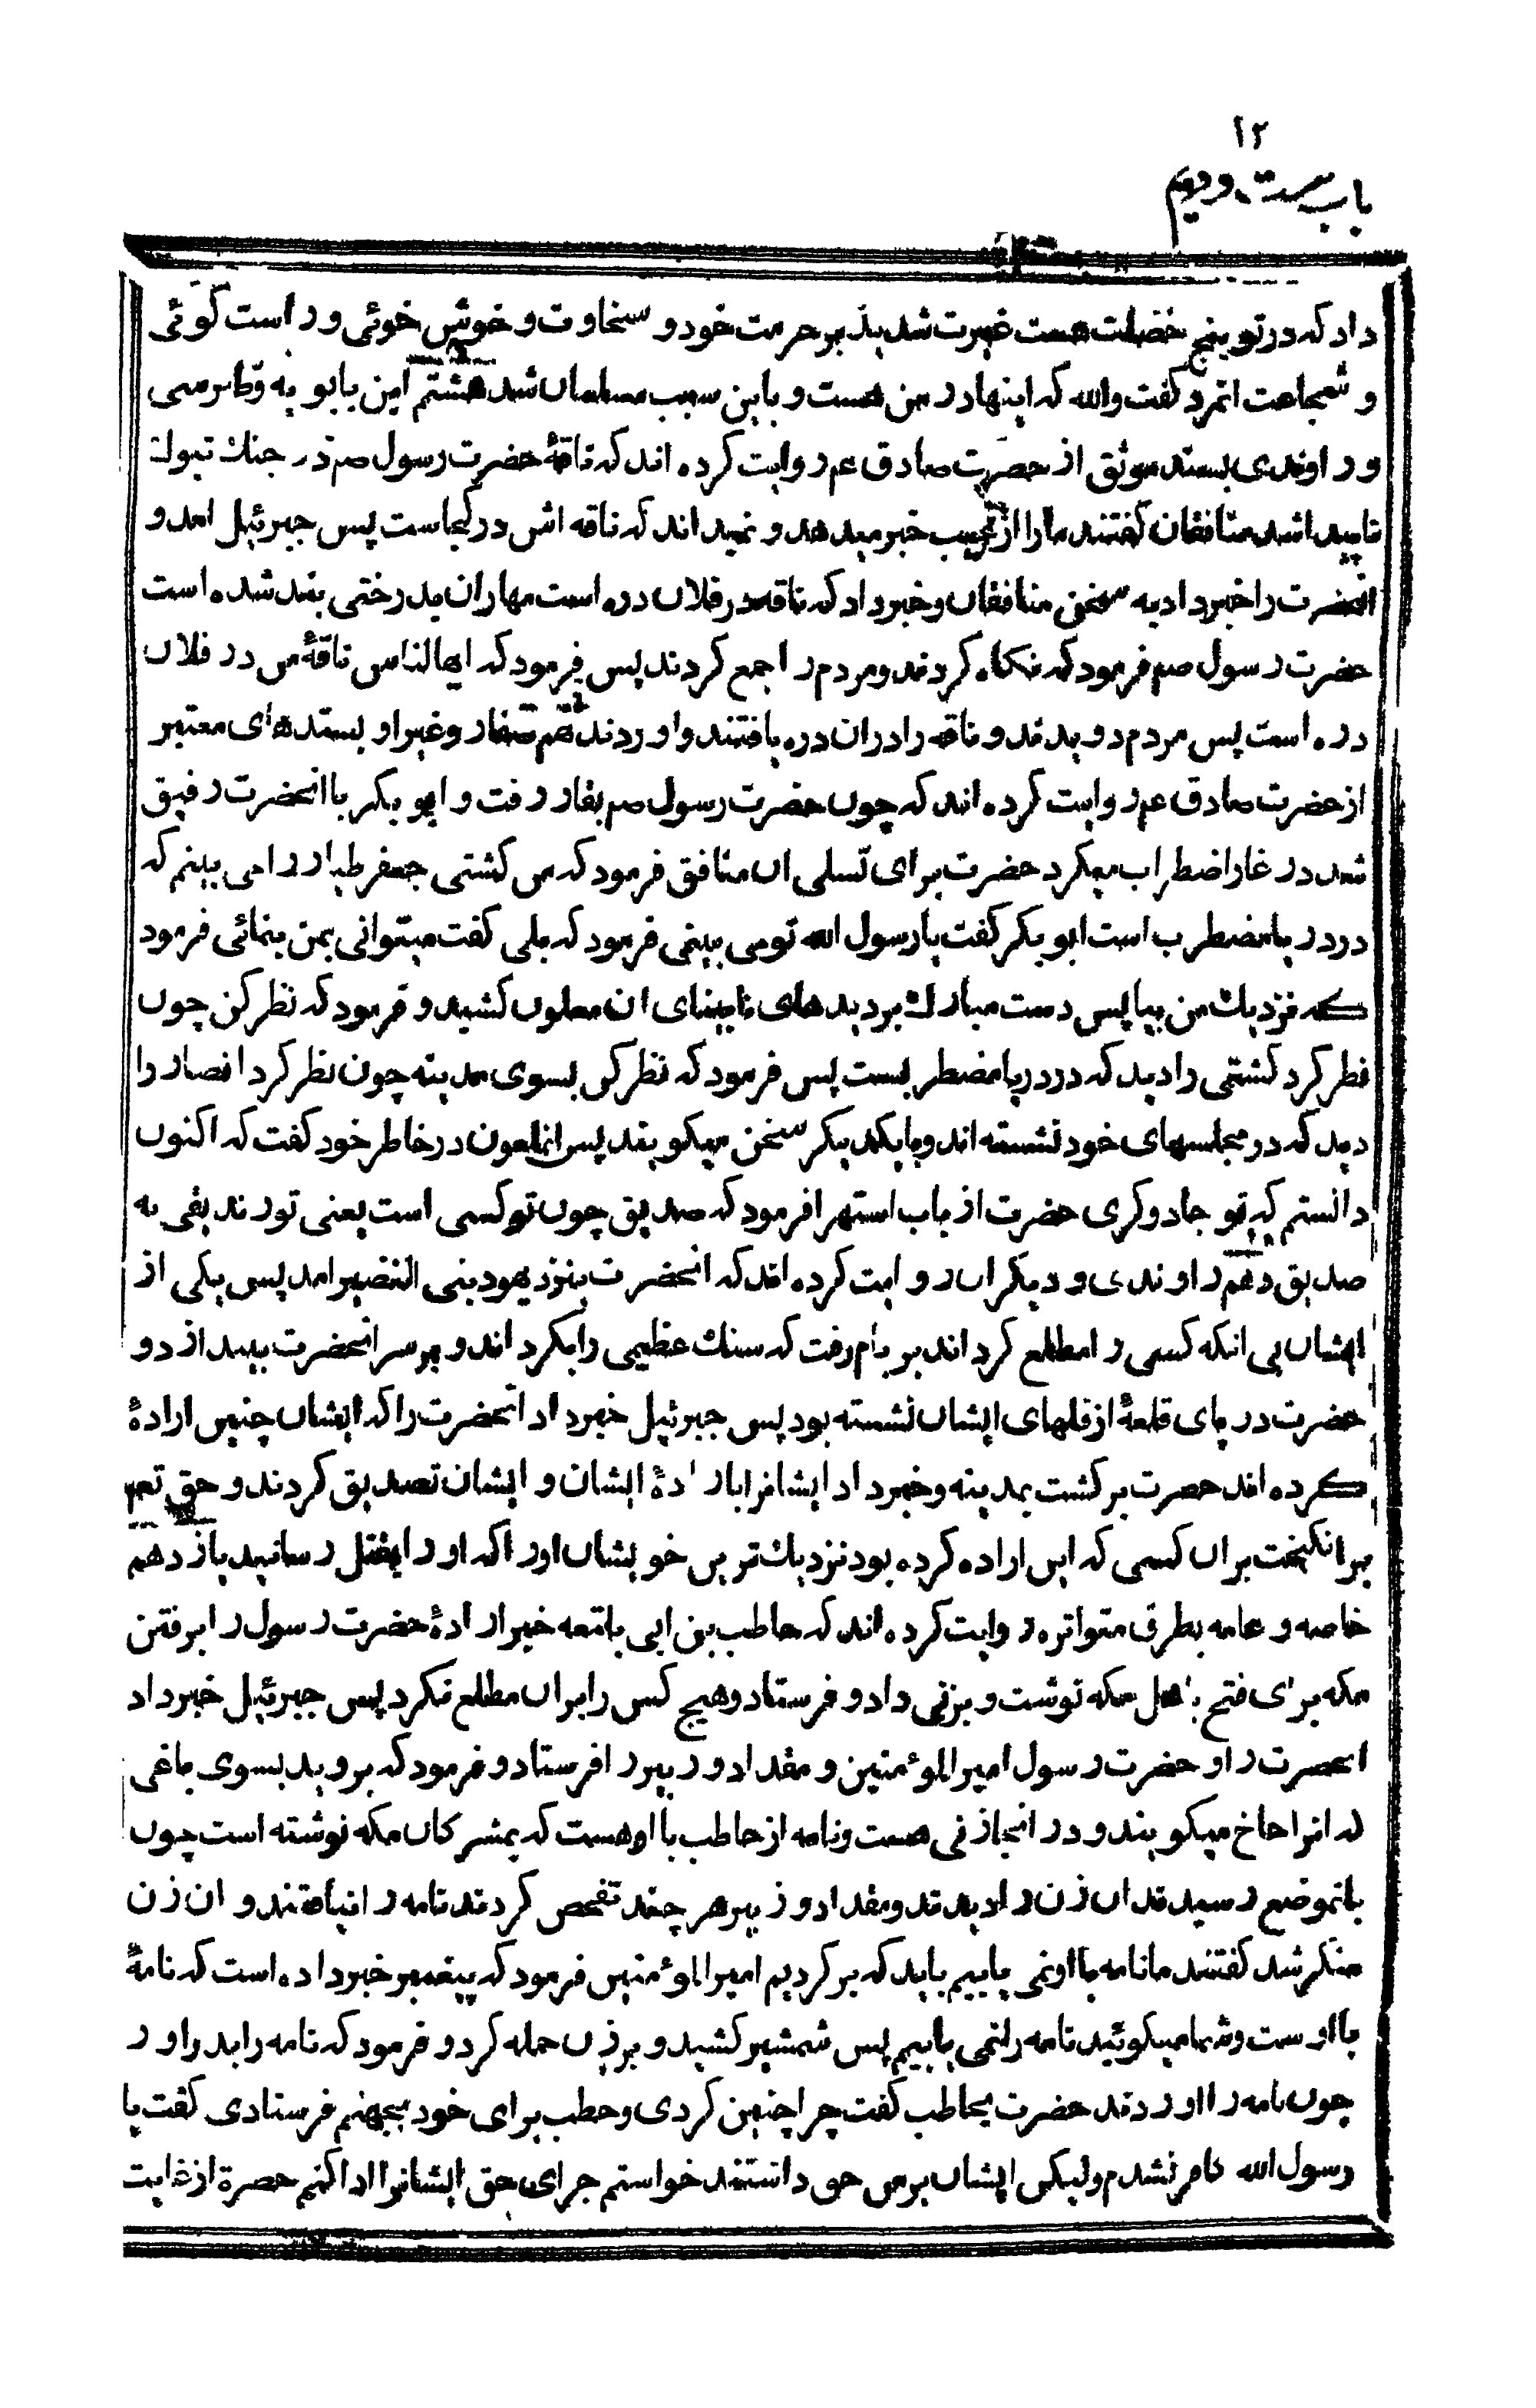 ۱۲
باب بیست و دویم
داد که در تو پنج خصلت هست غیرت شدید بر حرمت خود و سخاوت و خوش خوئی و راست کوئی
و شجاعت انمرد کفت والله که اینها در من هست و باین سبب مسلمان شد هشتم ابن بابویه و قطب
و راوندی بسند موثق از حضرت صادق عم روایت کرده اند که ناقهٔ حضرت رسول صم در جنك تبوك
ناپیدا شد منافقان کفتند ما را از غیب خبر میدهد و نمیداند که ناقه اش در کجاست پس جبرئیل امد و
انحضرت را خبر داد به سخن منافقان و خبر داد که ناقه در فلان دره است مهار ان بدرختی بند شده است
حضرت رسول صم فرمود که نکاه کردند و مردم را جمع کردند پس فرمود که ایها الناس ناقهٔ من در فلان
دره است پس مردم دویدند و ناقه را در ان دره یافتند و اوردند نهم صفار و غیر او بسندهای معتبر
از حضرت صادق عم روایت کرده اند که چون حضرت رسول صم بغار رفت و ابو بکر با انحضرت رفیق
شد در غار اضطراب میکرد حضرت برای تسلی ان منافق فرمود که من کشتی جعفر طیار را می بینم که
در دریا مضطرب است ابو بکر کفت یا رسول الله تو می بینی فرمود که بلی کفت میتوانی بمن بنمائی فرمود
که نزدیك من بیا پس دست مبارك بر دیدهای نابینای ان ملعون کشید و فرمود که نظر کن چون
نظر کرد کشتی را دید که در دریا مضطربست پس فرمود که نظر کن بسوی مدینه چون نظر کرد انصار را
دید که در مجلسهای خود نشسته اند و با یکدیکر سخن میکویند پس انملعون در خاطر خود کفت که اکنون
دانستم که تو جادوکری حضرت از باب استهزا فرمود که صدیق چون تو کسی است یعنی تو زندیقی نه
صدیق دهم راوندی و دیکران روایت کرده اند که انحضرت بنزد یهود بنی النضیر امد پس یکی از
ایشان بی انکه کسی را مطلع کرداند بر بام رفت که سنك عظیمی را بکرداند و بر سر انحضرت بیندازد و
حضرت در پای قلعهٔ از قلهای ایشان نشسته بود پس جبرئیل خبر داد انحضرت را که ایشان چنین ارادهٔ
کرده اند حضرت برکشت بمدینه و خبر داد ایشانرا بارادهٔ ایشان و ایشان تصدیق کردند و حق تعم
برانکیخت بران کسی که این اراده کرده بود نزدیك ترین خویشان او را که او را بقتل رسانید یازدهم
خاصه و عامه بطرق متواتره روایت کرده اند که حاطب بن ابی بلتعه خبر ارادهٔ حضرت رسول را برفتن
مکه برای فتح باهل مکه نوشت و بزنی داد و فرستاد و هیچ کس را بران مطلع نکرد پس جبرئیل خبر داد
انحضرت را و حضرت رسول امیرالموٴمنین و مقداد و زبیر را فرستاد و فرمود که بروید بسوی باغی
که انرا خاخ میکویند و در انجا زنی هست و نامه از حاطب با او هست که بمشرکان مکه نوشته است چون
بانموضع رسیدند ان زن را دیدند و مقداد و زبیر هر چند تفحص کردند نامه را نیافتند و ان زن
منکر شد کفتند ما نامه با او نمی یابیم باید که برکردیم امیرالموٴمنین فرمود که پیغمبر خبر داده است که نامهٔ
با اوست و شما میکوئید نامه را نمی یابیم پس شمشیر کشید و بر زن حمله کرد و فرمود که نامه را بدر اور
چون نامه را اوردند حضرت بحاطب کفت چرا چنین کردی و حطب برای خود بجهنم فرستادی کفت یا
رسول الله کافر نشدم ولیکن ایشان بر من حق داشتند خواستم جزای حق ایشانرا ادا کنم حضرة از غایت